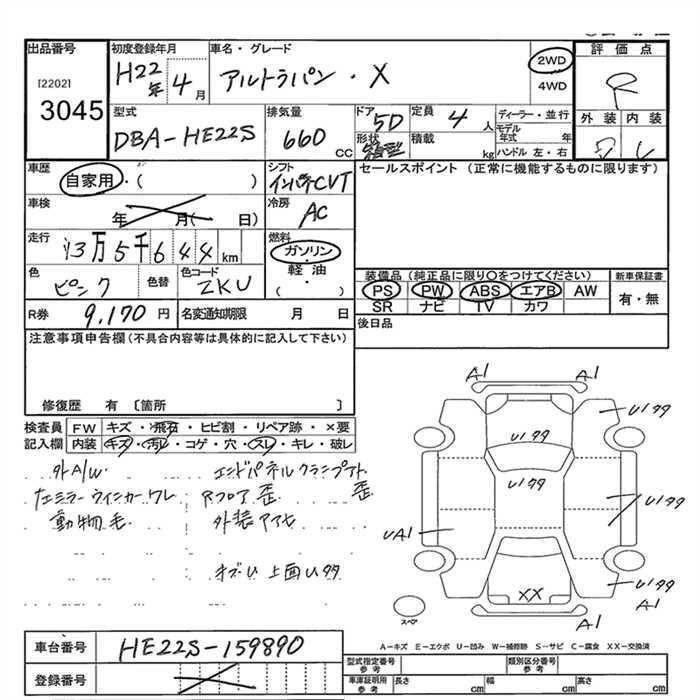 出品番号
[2202]
3045
初度登録年月
H22年 4月
車名・グレード
アルトラパン・X
2WD
4WD
評価点
R
外装 内装
型式
DBA-HE22S
排気量
660 CC
ドア
5D
定員
4人
形状
箱型
積載
kg
ディーラー・並行
モデル年式 年
ハンドル 左・右
車歴
自家用・( )
シフト
インパネCVT
セールスポイント (正常に機能するものに限ります)
車検
年 月( 日)
冷房
AC
走行
13万5千644km
燃料
ガソリン
軽油
( ・ )
色
ピンク
色替
色コード
ZKU
装備品 (純正品に限り○をつけてください)
新車保証書
PS PW ABS エアB AW
SR ナビ TV カワ
有・無
R券 9,170円
名変通知期限 月 日
後日品
注意事項申告欄(不具合内容等は具体的に記入して下さい)
修復歴 有 〔箇所 〕
検査員記入欄
FW キズ・飛石・ヒビ割・リペア跡・×要
内装 キズ・汚レ・コゲ・穴・スレ・キレ・破レ
外A/W
左ミラーウィンカーワレ
動物毛
エンドパネルクランプアト
Rフロア歪 歪
外装アアセ
オズレ 上面Uタタ
A1 A1
Uタタ
Uタタ
Uタタ
Uタタ
UA1
Uタタ
XX
A1
A1
スペア
A-キズ E-エクボ U-凹み W-補修跡 S-サビ C-腐食 XX-交換済
車台番号
HE22S-159890
登録番号
型式指定番号 参考
類別区分番号 参考
車庫証明用 参考
長さ cm 幅 cm 高さ cm